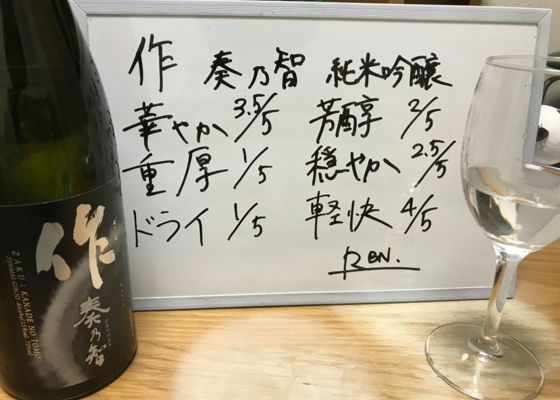 作 奏乃智 純米吟醸
華やか 3.5/5 芳醇 2/5
重厚 1/5 穏やか 2.5/5
ドライ 1/5 軽快 4/5
REN.
作
奏乃智
ZAKU | KANADE NO TOMO
JUNMAI GINJO Alcohol 15% 720ml